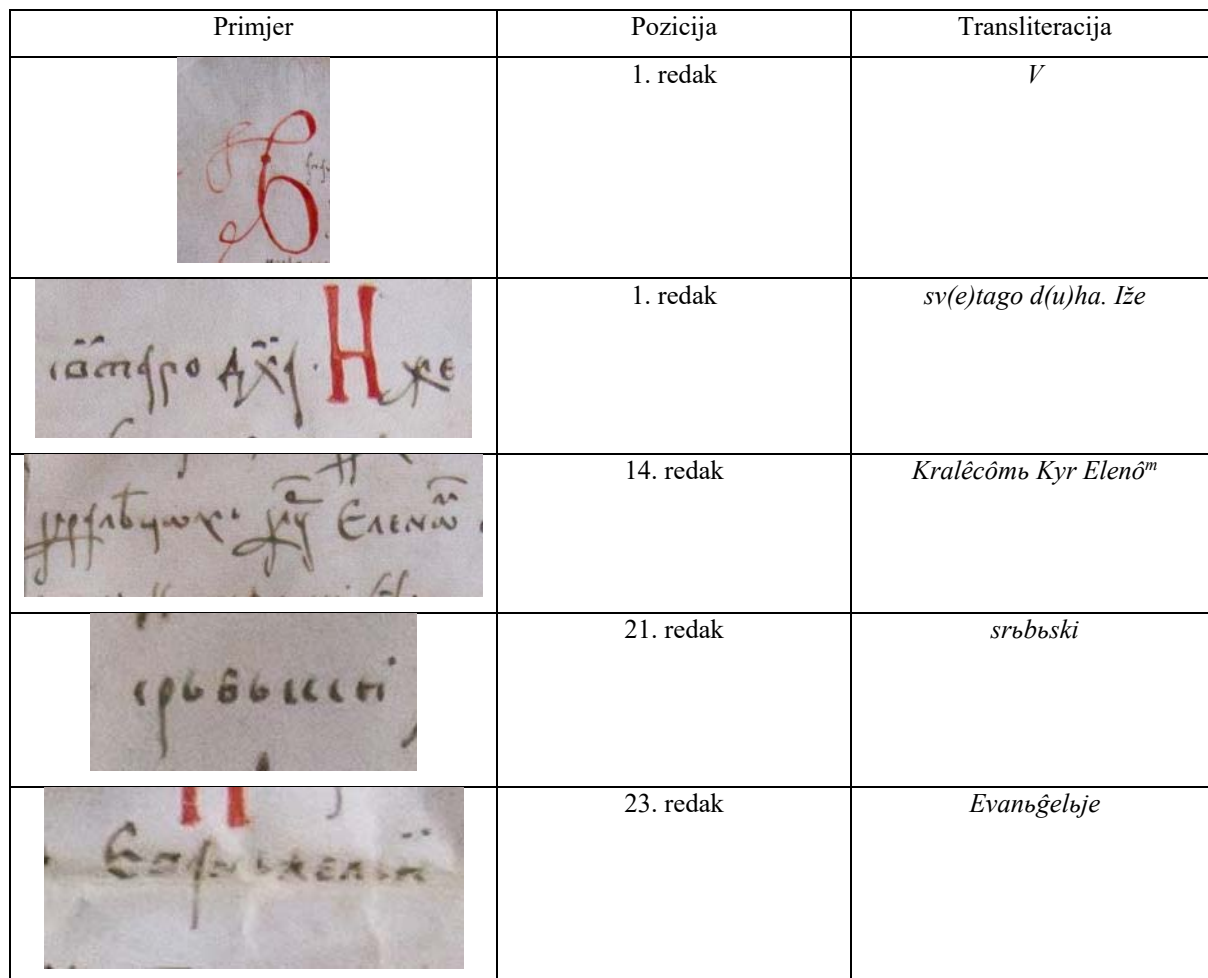 Primjer Pozicija Transliteracija
1. redak V
свтаго дха · Иже 1. redak sv(e)tago d(u)ha. Iže
14. redak Kralêcômь Kyr Elenôᵐ
срьбьски 21. redak srьbьski
23. redak Evanьĝelьje